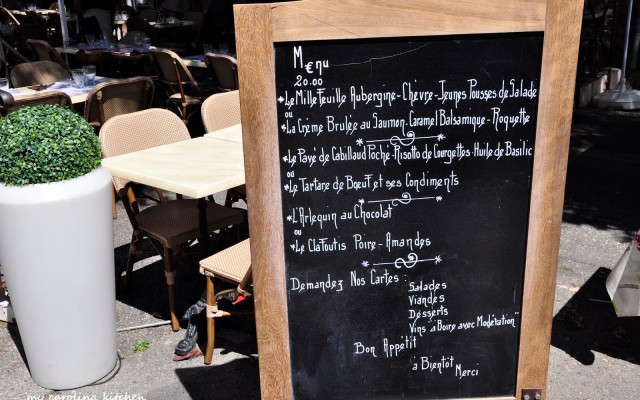 M€nu
20.00
*Le Mille Feuille Aubergine - Chèvre - Jeunes Pousses de Salade
ou
*La Crème Brulée au Saumon - Caramel Balsamique - Roquette
*Le Pavé de Cabillaud Poché - Risotto de Courgettes - Huile de Basilic
ou
*Le Tartare de Bœuf et ses Condiments
*L'Arlequin au Chocolat
ou
*Le Clafoutis Poire - Amandes
Demandez Nos Cartes :
Salades
Viandes
Desserts
Vins "à Boire avec Modération"
Bon Appétit
à Bientôt
Merci
my carolina kitchen